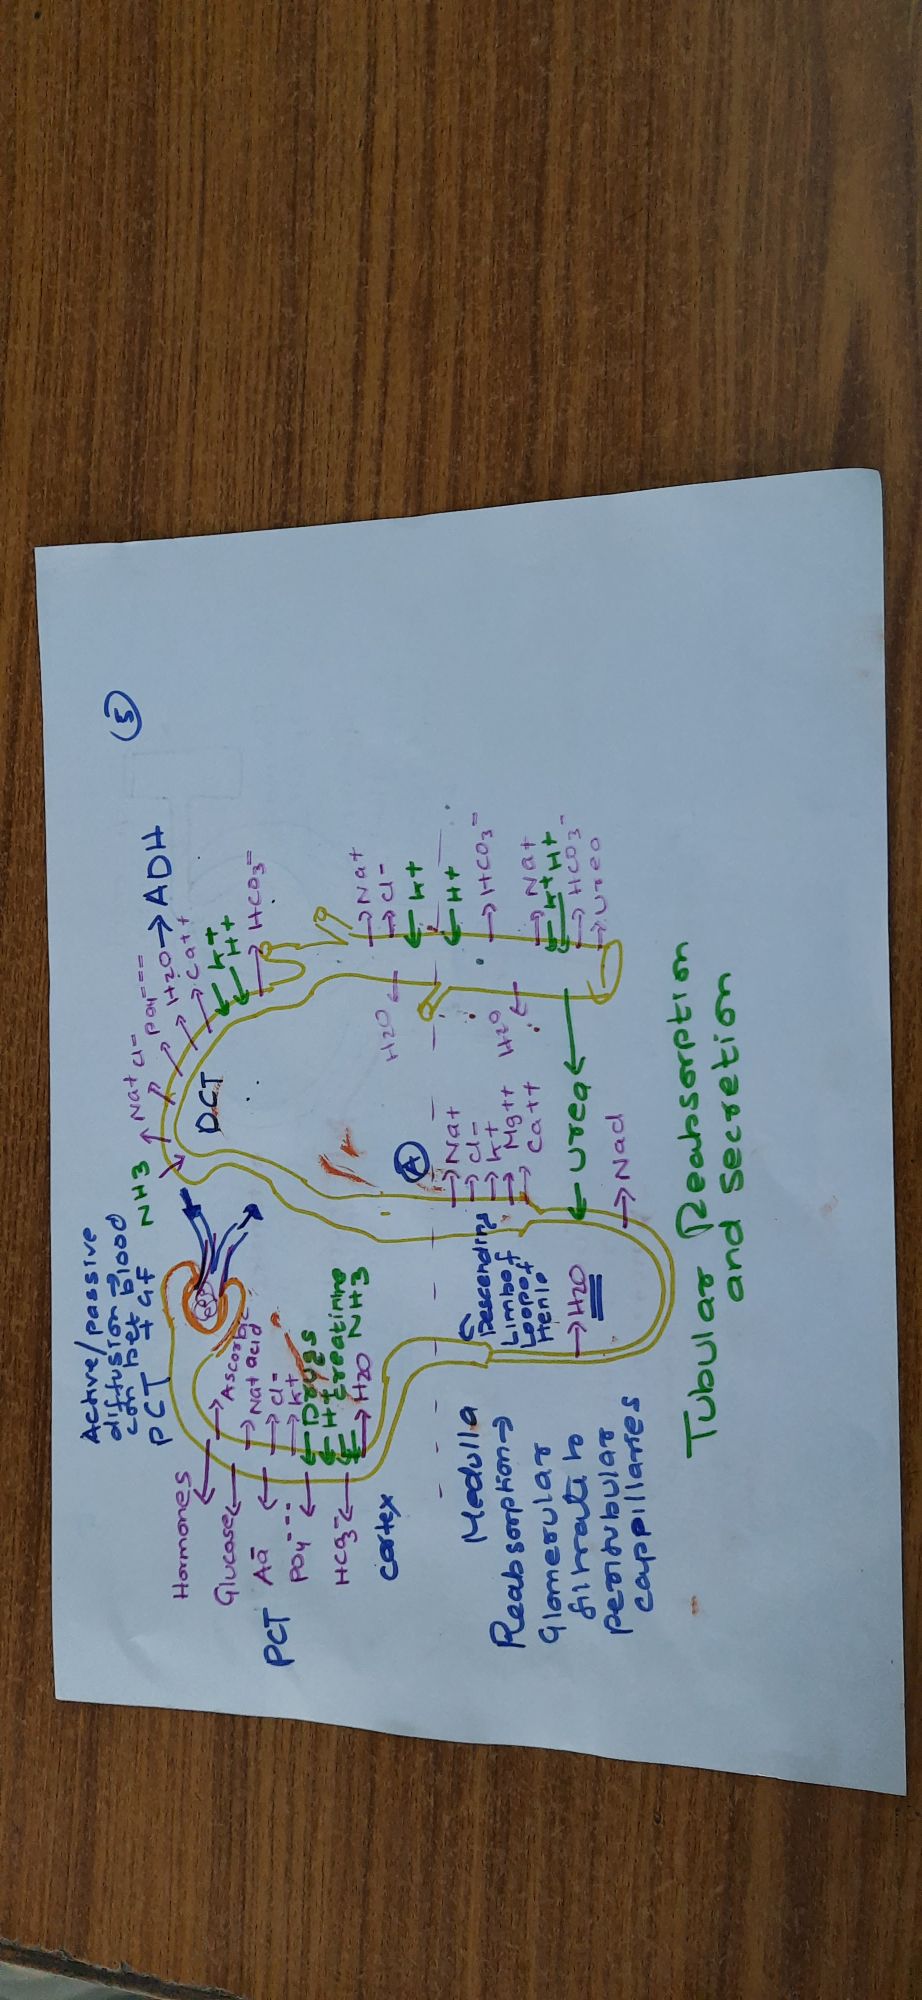 5
Active/passive
diffusion →
con bet blood
PCT + GF
NH3
Na+ Cl-
PO4---
H2O → ADH
Ca++
K+
H+
HCO3-
Hormones
Glucose
Aa
PO4---
HCO3-
PCT
Ascorbic
Na+ acid
Cl-
K+
Drugs
H+
Creatinine
NH3
H2O
cortex
DCT
Na+
Cl-
K+
H+
HCO3-
Na+
K+ H+
HCO3-
Urea
H2O
H2O
A
Na+
Cl-
K+
Mg++
Ca++
Urea
Nacl
Medulla
Descending
Limb of
Loop of
Henle
H2O
Reabsorption→
Glomerular
filtrate to
peritubular
cappillaries
Tubular Reabsorption
and secretion